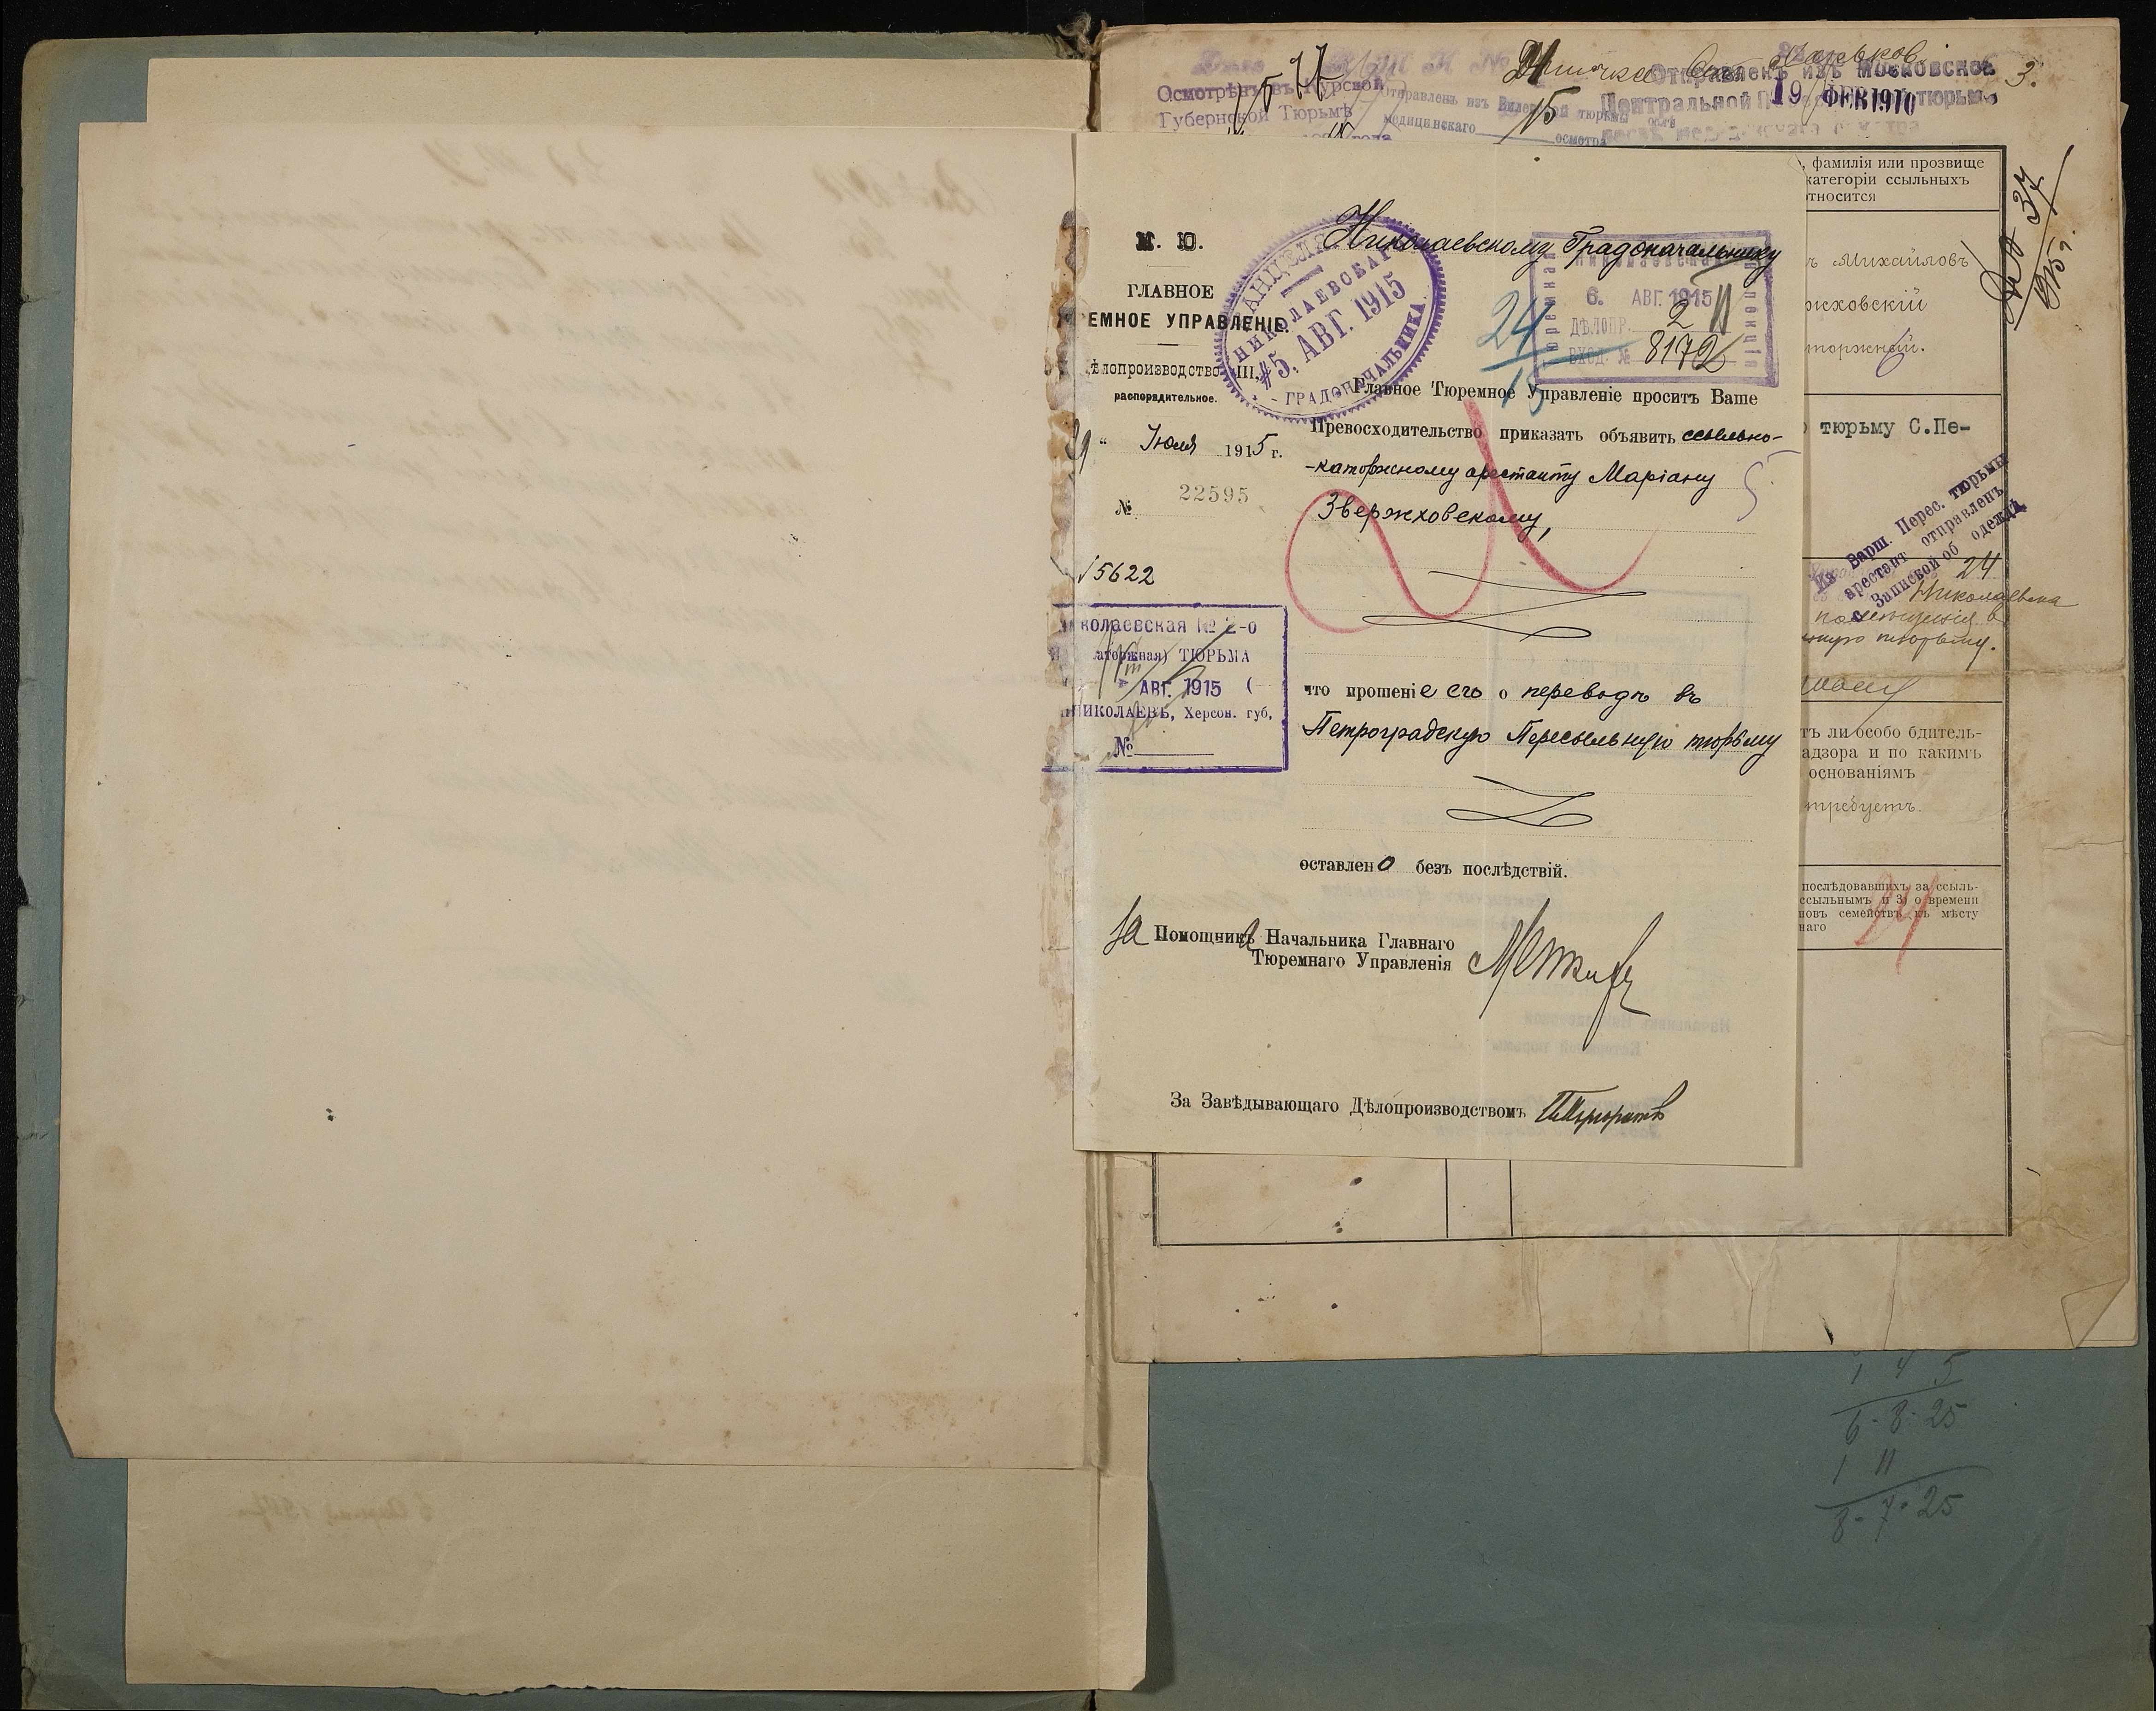 577
15
Харьков.
3.
Осмотрѣнъ въ Курской
Губернской Тюрьмѣ
Отправленъ изъ Виленской тюрьмы
медицинскаго осмотра
Отправленъ изъ Московской
Центральной тюрьмы
19 ФЕВ 1910
М. Ю.
ГЛАВНОЕ
ЕМНОЕ УПРАВЛЕНІЕ.
ѣлопроизводство III,
распорядительное.
29 " Іюля 1915 г.
№ 22595
15622
КАНЦЕЛЯРІЯ
НИКОЛАЕВСКАГО
5. АВГ. 1915
ГРАДОНАЧАЛЬНИКА
Николаевскому Градоначальнику
6. АВГ. 1915
ДѢЛОПР. 2
ВХОД. № 8172
24
15
Главное Тюремное Управленіе проситъ Ваше
Превосходительство приказать объявить ссыльно-
-каторжному арестанту Маріану
Звержховскому,
колаевская № 2-о
аторжная) ТЮРЬМА
АВГ. 1915
НИКОЛАЕВЪ, Херсон. губ,
№
что прошеніе его о переводѣ въ
Петроградскую Пересыльную тюрьму
оставлено безъ послѣдствій.
За Помощника Начальника Главнаго
Тюремнаго Управленія
За Завѣдывающаго Дѣлопроизводствомъ
, фамилія или прозвище
категоріи ссыльныхъ
тносится
ъ Михайловъ
ржховскій
торжный.
37
915 г.
тюрьму С.Пе-
Из Варш. Перес. тюрьмы
арестант отправленъ
с Запиской об одеждѣ
24
Николаевска
тюрьму.
тъ ли особо бдитель-
адзора и по какимъ
основаніямъ
требуетъ.
послѣдовавшихъ за ссыль-
ссыльнымъ и 3) о времени
новъ семействъ къ мѣсту
наго
24
1 4 5
6-8-25
1 11
8-7-25